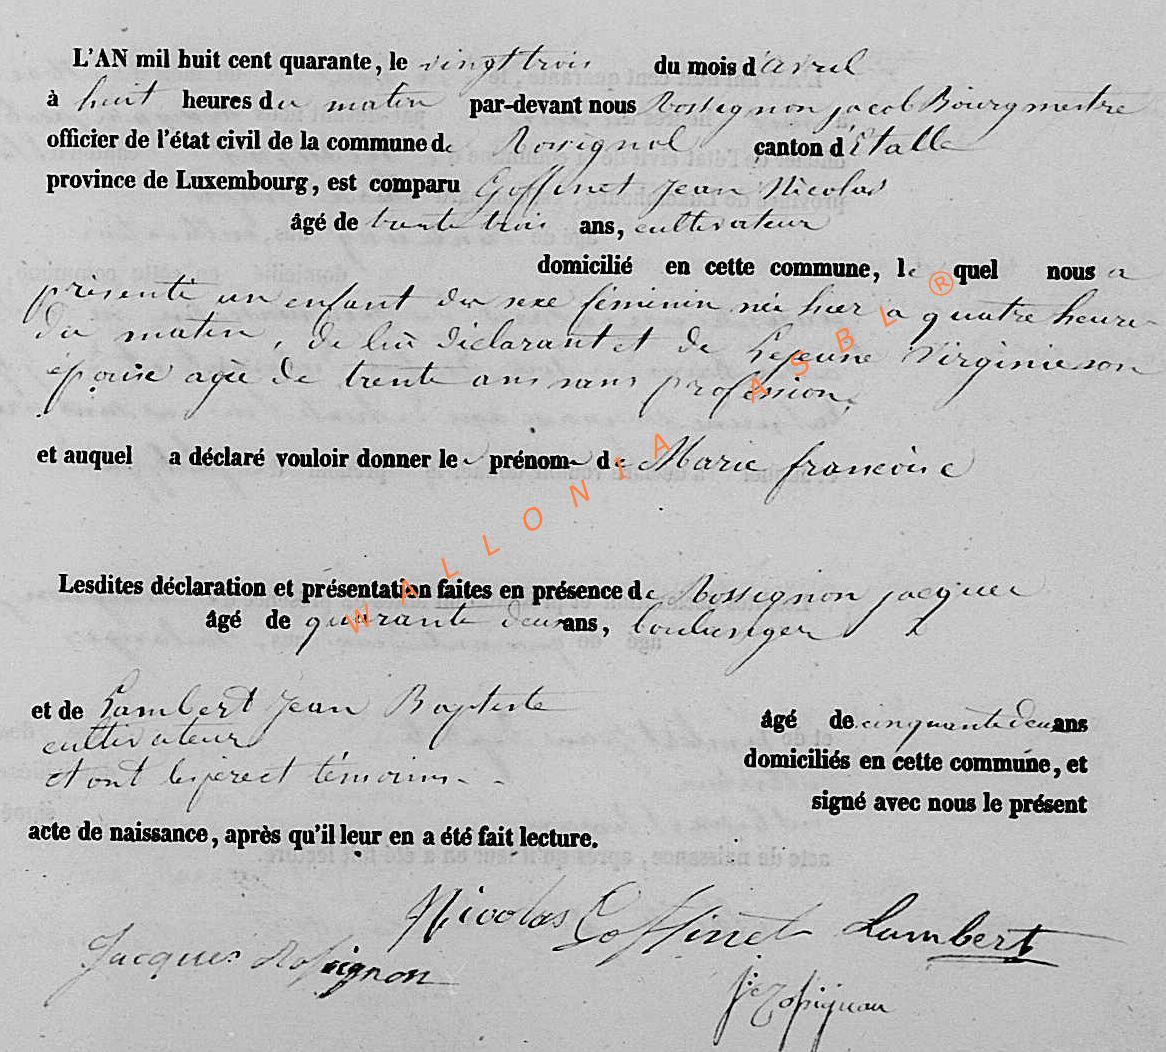 L'AN mil huit cent quarante, le vingt trois du mois d'avril
à huit heures du matin par-devant nous Rossignon jacob Bourgmestre
officier de l'état civil de la commune de Rossignol canton d'Etalle
province de Luxembourg, est comparu Goffinet Jean Nicolas
âgé de trente trois ans, cultivateur
domicilié en cette commune, lequel nous a
présenté un enfant du sexe féminin née hier à quatre heures
du matin, de lui déclarant et de Lejeune Virginie son
épouse agée de trente ans sans profession.
et auquel a déclaré vouloir donner le prénom de Marie francoise
Lesdites déclaration et présentation faites en présence de Rossignon jacques
âgé de quarante deux ans, boulanger
et de Lambert Jean Baptiste âgé de cinquante deux ans
cultivateur domiciliés en cette commune, et
et ont les père et témoins signé avec nous le présent
acte de naissance, après qu'il leur en a été fait lecture.
Nicolas Goffinet Lambert
Jacques Rossignon
Rossignon
WALLONIA ASBL ®